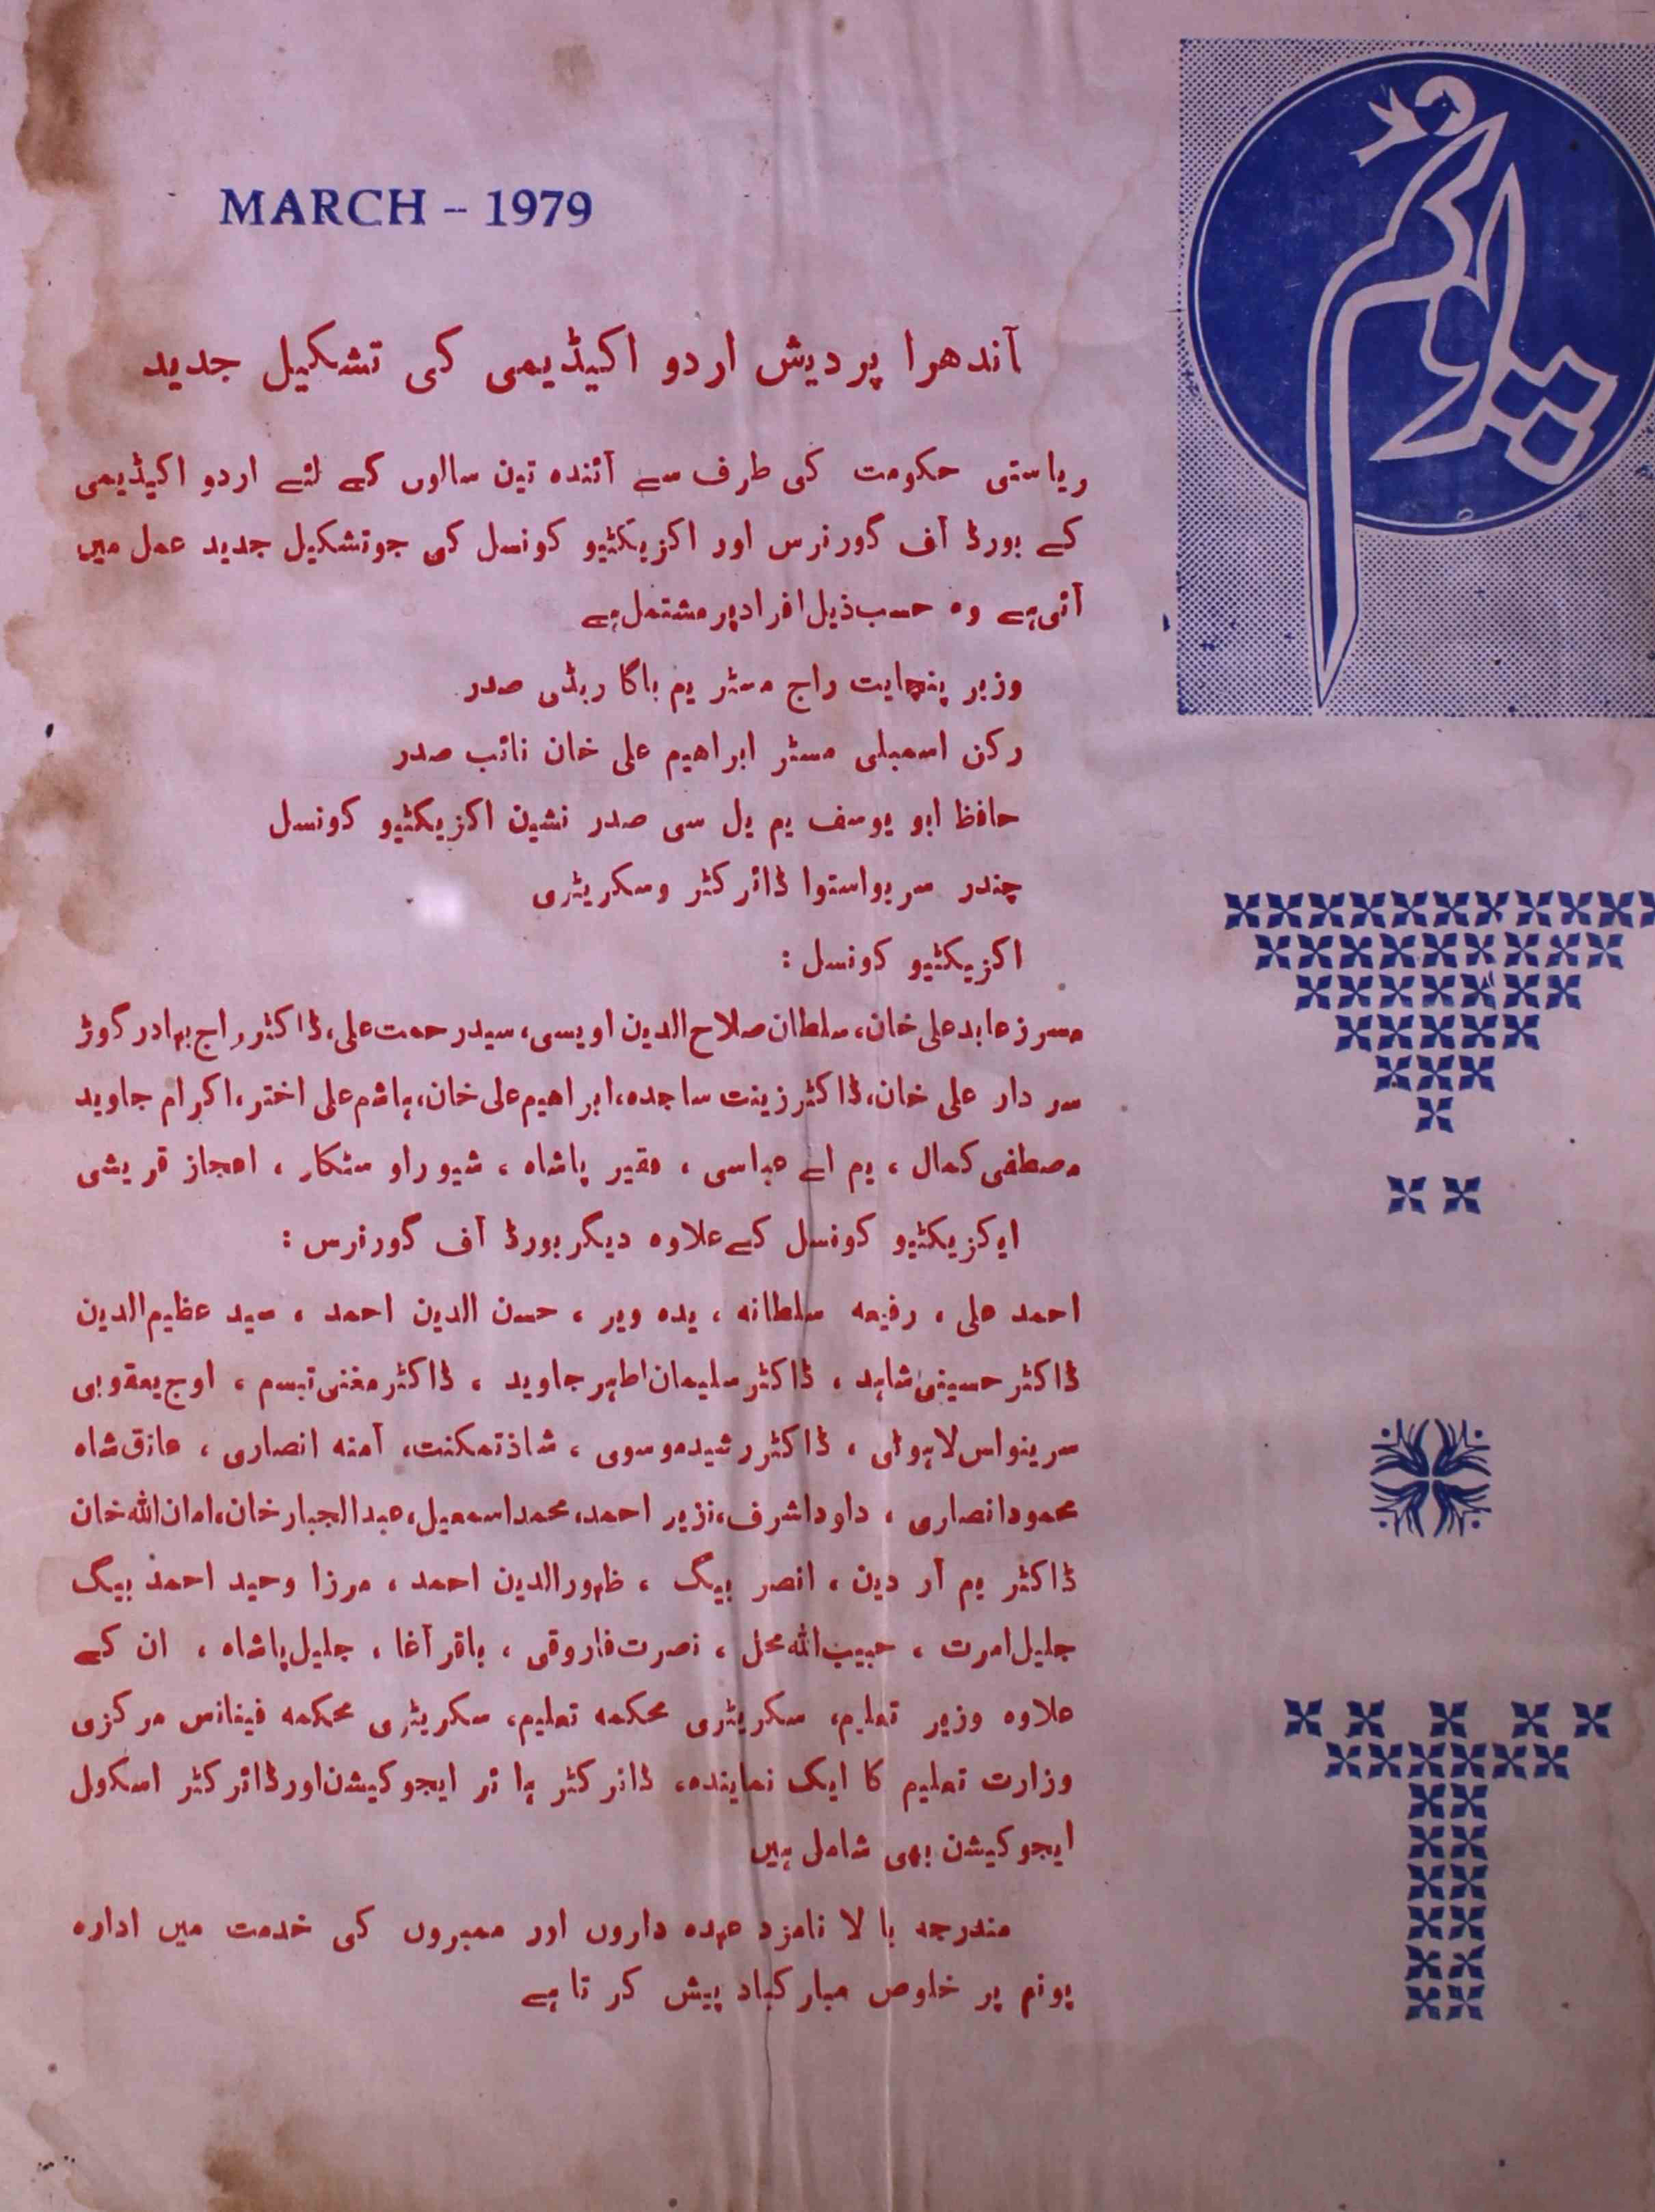 پونم
MARCH - 1979
آندھرا پردیش اردو اکیڈیمی کی تشکیل جدید
ریاستی حکومت کی طرف سے آئندہ تین سالوں کے لئے اردو اکیڈیمی
کے بورڈ آف گورنرس اور اکزیکٹیو کونسل کی جو تشکیل جدید عمل میں
آئی ہے وہ حسب ذیل افراد پر مشتمل ہے
وزیر پنچایت راج مسٹر یم باگا ریڈی صدر
رکن اسمبلی مسٹر ابراھیم علی خان نائب صدر
حافظ ابو یوسف یم یل سی صدر نشین اکزیکٹیو کونسل
چندر سریواستوا ڈائرکٹر وسکریٹری
اکزیکٹیو کونسل :
مسرز عابد علی خان، سلطان صلاح الدین اویسی، سید رحمت علی، ڈاکٹر راج بہادر گوڑ
سردار علی خان، ڈاکٹر زینت ساجدہ، ابراھیم علی خان، ہاشم علی اختر، اکرام جاوید
مصطفی کمال ، یم اے عباسی ، فقیر پاشاہ ، شیو راو سٹکار ، اعجاز قریشی
ایکزیکٹیو کونسل کے علاوہ دیگر بورڈ آف گورنرس :
احمد علی ، رفیعہ سلطانہ ، یدہ ویر ، حسن الدین احمد ، سید عظیم الدین
ڈاکٹر حسینی شاہد ، ڈاکٹر سلیمان اطہر جاوید ، ڈاکٹر مغنی تبسم ، اوج یعقوبی
سرینواس لاہوٹی ، ڈاکٹر رشید موسوی ، شاذ تمکنت، آمنہ انصاری ، عاتق شاہ
محمود انصاری ، داود اشرف، نذیر احمد، محمد اسمعیل، عبدالجبار خان، امان اللہ خان
ڈاکٹر یم آر دین ، انصر بیگ ، ظہور الدین احمد ، مرزا وحید احمد بیگ
جلیل امرت ، حبیب اللہ محل ، نصرت فاروقی ، باقر آغا ، جلیل پاشاہ ، ان کے
علاوہ وزیر تعلیم، سکریٹری محکمہ تعلیم، سکریٹری محکمہ فینانس مرکزی
وزارت تعلیم کا ایک نمایندہ، ڈائرکٹر ہائر ایجوکیشن اور ڈائرکٹر اسکول
ایجوکیشن بھی شامل ہیں
مندرجہ بالا نامزد عہدہ داروں اور ممبروں کی خدمت میں ادارہ
پونم پر خلوص مبارکباد پیش کرتا ہے